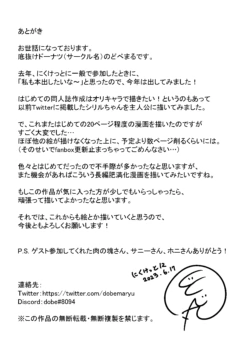 あとがき
お世話になっております。
底抜けドーナツ(サークル名)のどべまるです。
去年、にくけっとに一般で参加したときに、
「私も本出したいな～」と思ったので、今年は出してみました！
はじめての同人誌作成はオリキャラで描きたい！というのもあって
以前Twitterに掲載したシリルちゃんを主人公に描いてみました。
で、これまたはじめての20ページ程度の漫画を描いたのですが
すごく大変でした…
ほぼ他の絵が描けなくなった上に、予定より数ページ削るくらいには。
(そのせいでfanbox更新止まっちゃってごめんなさい…)
色々とはじめてだったので不手際が多かったなと思いますが、
また機会があればこういう長編肥満化漫画を描いてみたいですね。
もしこの作品が気に入った方が少しでもいらっしゃったら、
頑張って描いてよかったなと思います。
それでは、これからも絵とか描いていくと思うので、
今後ともよろしくお願いします！
P.S. ゲスト参加してくれた肉の塊さん、サニーさん、ホニさんありがとう！
にくけっと12
2023.6.17
連絡先：
Twitter：https://twitter.com/dobemaryu
Discord: dobe#8094
※この作品の無断転載・無断複製を禁じます。